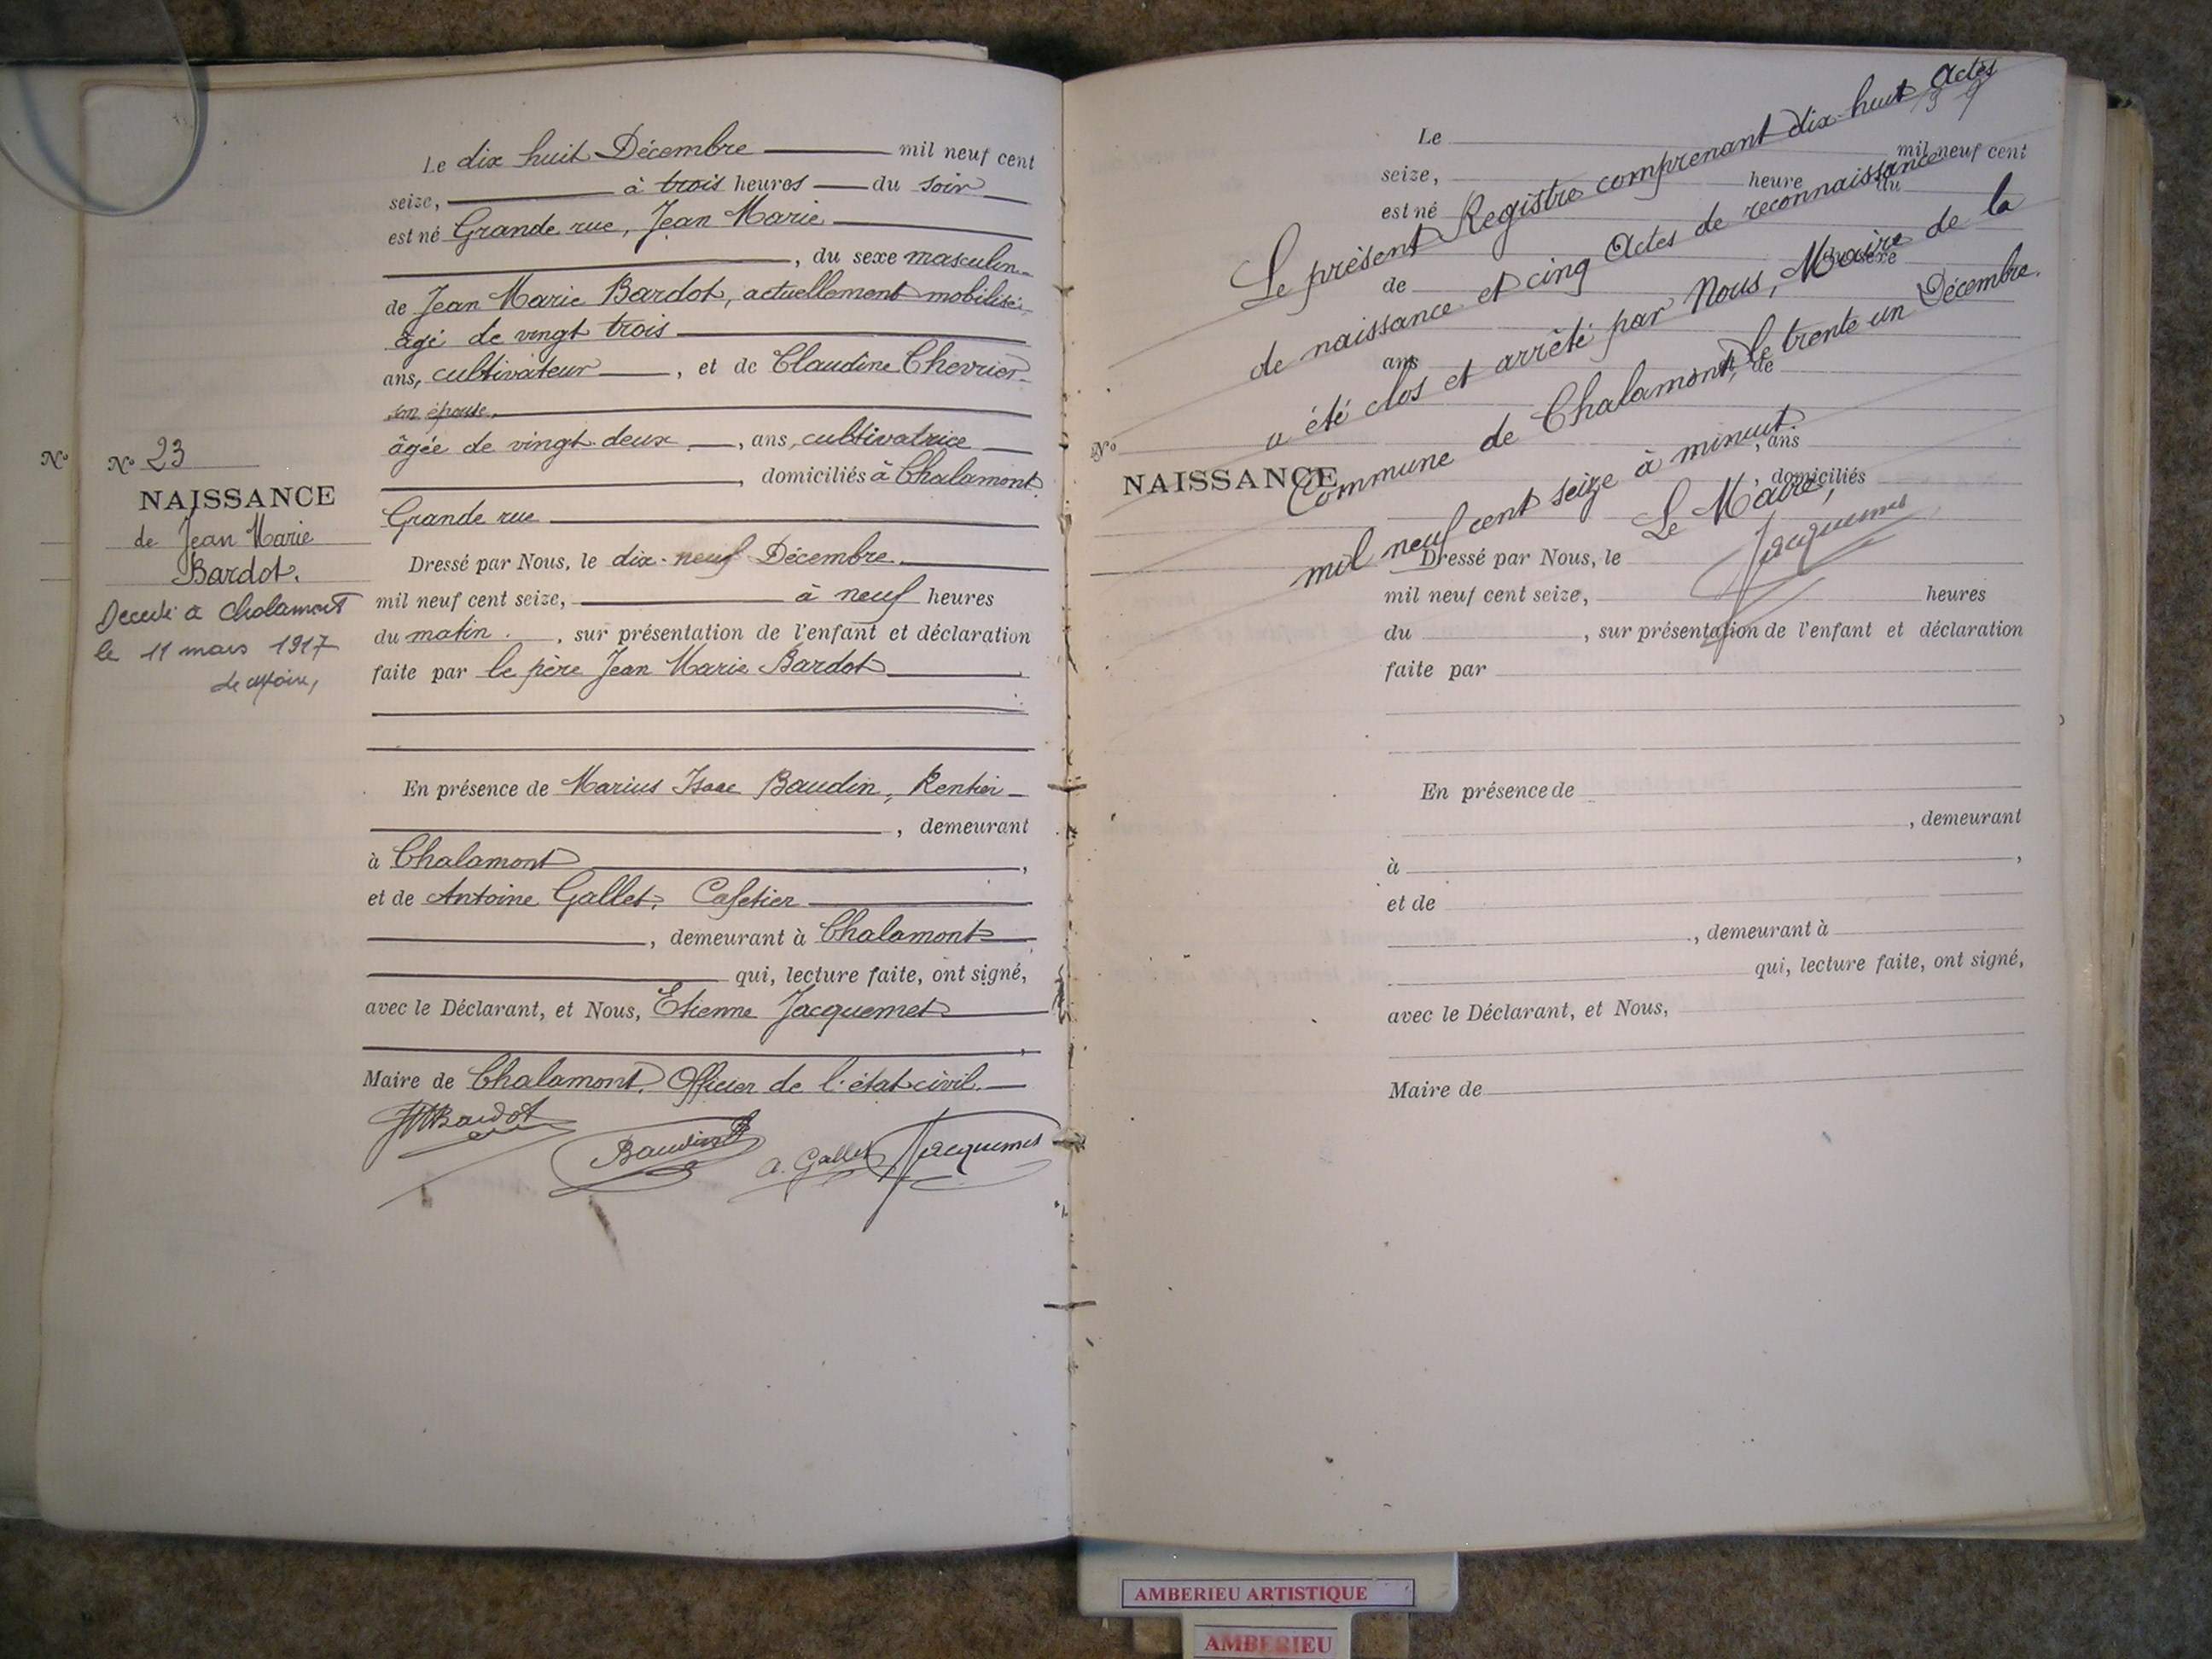 Le dix huit Décembre mil neuf cent
seize, à trois heures du soir
est né Grande rue, Jean Marie
, du sexe masculin
de Jean Marie Bardot, actuellement mobilisé,
âgé de vingt trois
ans, cultivateur , et de Claudine Chevrier
son épouse,
âgée de vingt deux , ans, cultivatrice
, domiciliés à Chalamont
Grande rue
Dressé par Nous, le dix-neuf Décembre
mil neuf cent seize, à neuf heures
du matin , sur présentation de l'enfant et déclaration
faite par le père Jean Marie Bardot
En présence de Marius Isaac Baudin, Rentier
, demeurant
à Chalamont ,
et de Antoine Gallet, Cafetier
, demeurant à Chalamont
qui, lecture faite, ont signé,
avec le Déclarant, et Nous, Etienne Jacquemet
Maire de Chalamont, Officier de l'état civil.
JMBardot
Baudin
A. Gallet
Jacquemet
No
No 23
NAISSANCE
de Jean Marie
Bardot.
Décédé à Chalamont
le 11 mars 1917
Le présent Registre comprenant dix-huit Actes
de naissance et cinq Actes de reconnaissance
a été clos et arrêté par Nous, Maire de la
Commune de Chalamont, le trente un Décembre
mil neuf cent seize à minuit.
Le Maire,
Jacquemet
Le mil neuf cent
seize, heure du
est né
de
ans de
No , ans
NAISSANCE , domiciliés
Dressé par Nous, le
mil neuf cent seize, heures
du , sur présentation de l'enfant et déclaration
faite par
En présence de
, demeurant
à ,
et de
, demeurant à
qui, lecture faite, ont signé,
avec le Déclarant, et Nous,
Maire de
AMBERIEU ARTISTIQUE
AMBERIEU